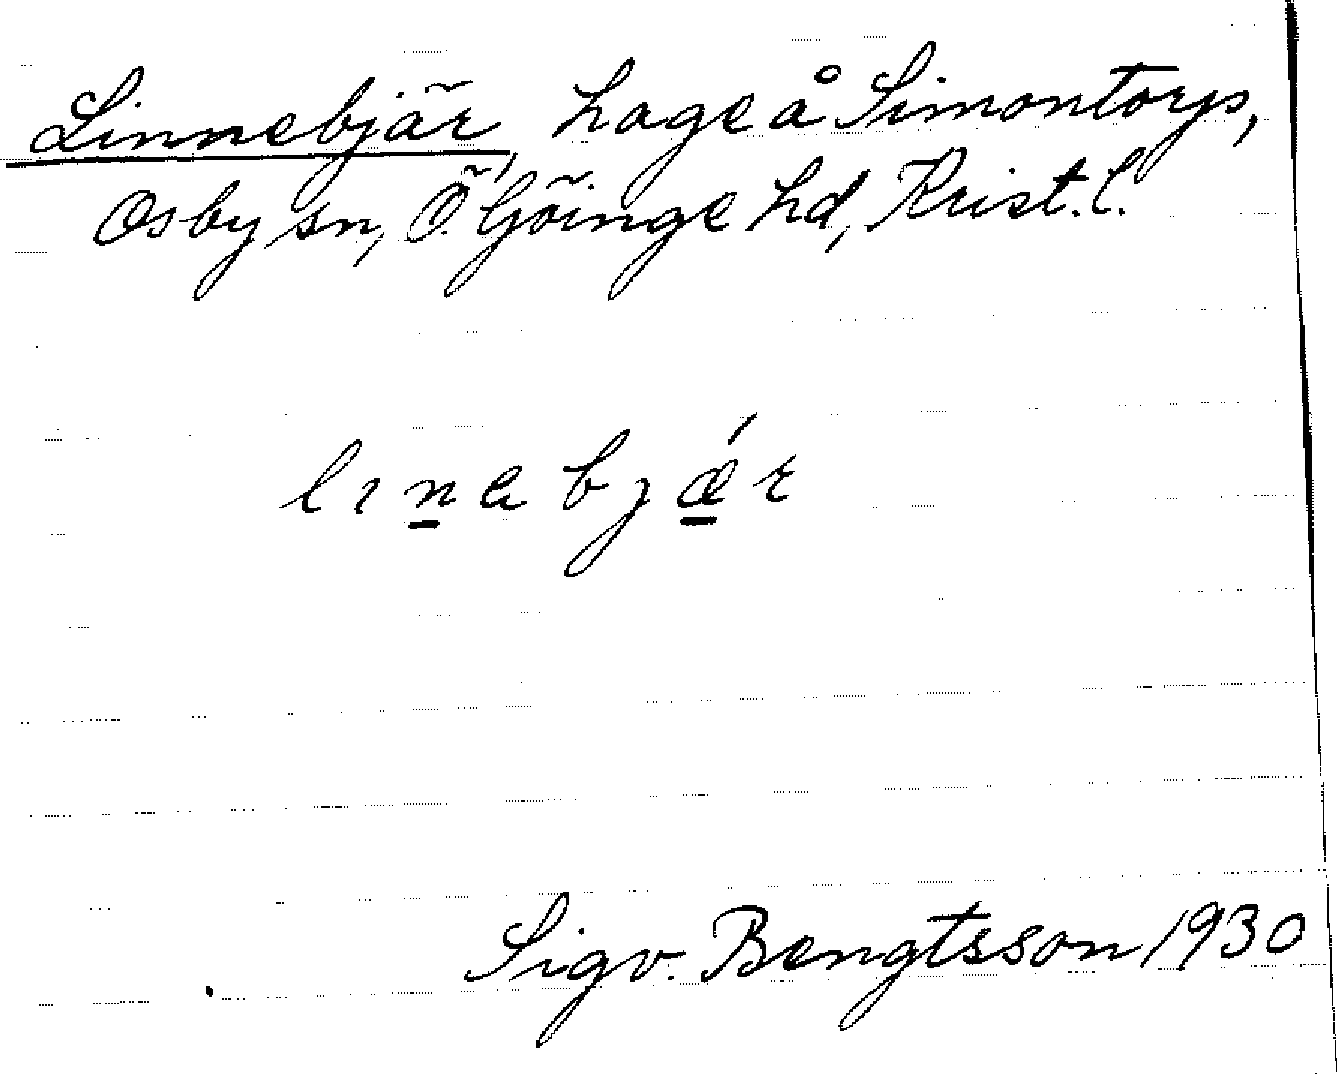 Linnebjär, hage å Simontorps,
Osby sn, Ö. Göinge hd, Krist. l.
lınabȷǽr
Sigv. Bengtsson 1930